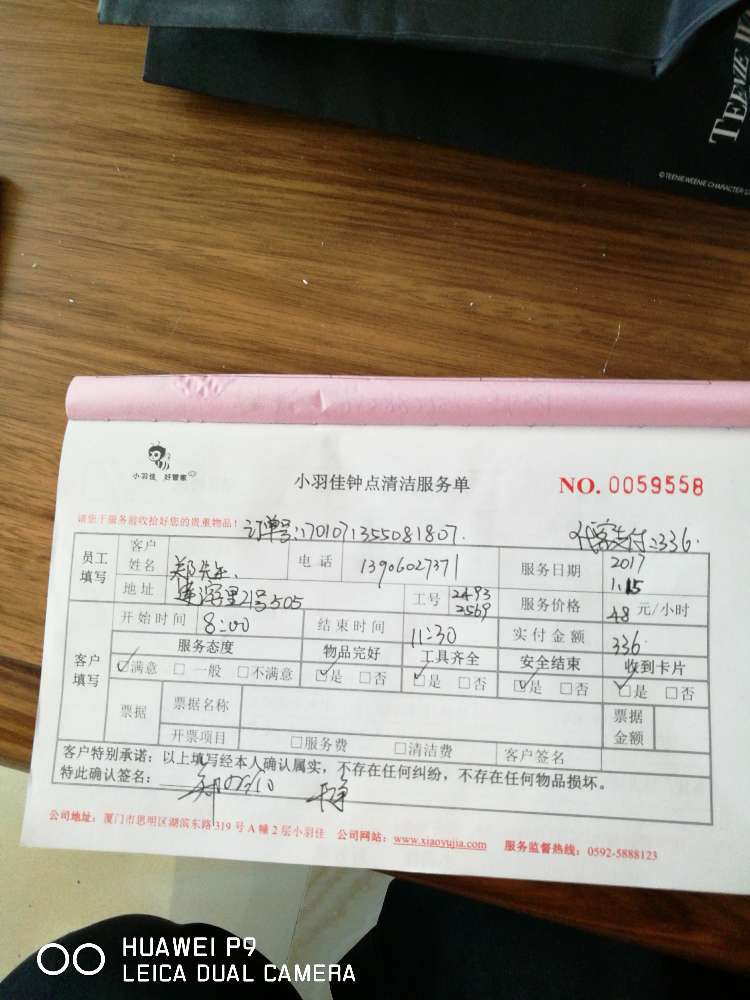 TEENIE W
©TEENIE WEENIE CHARACTER
小羽佳 好管家
小羽佳钟点清洁服务单
NO. 0059558
请您于服务前收拾好您的贵重物品!
订单号:1701071355081807.
代客支付:336.
员工填写
客户姓名 郑先生 电话 13906027371 服务日期 2017 1.15
地址 里21号505 工号 2493 2569 服务价格 48 元/小时
客户填写
开始时间 8:00 结束时间 11:30 实付金额 336.
服务态度 物品完好 工具齐全 安全结束 收到卡片
☑满意 □一般 □不满意 ☑是 □否 ☑是 □否 ☑是 □否 ☑是 □否
票据 票据名称 票据金额
开票项目 □服务费 □清洁费 客户签名
客户特别承诺:以上填写经本人确认属实,不存在任何纠纷,不存在任何物品损坏。
特此确认签名: 郑
公司地址:厦门市思明区湖滨东路319号A幢2层小羽佳 公司网站:www.xiaoyujia.com 服务监督热线:0592-5888123
HUAWEI P9
LEICA DUAL CAMERA